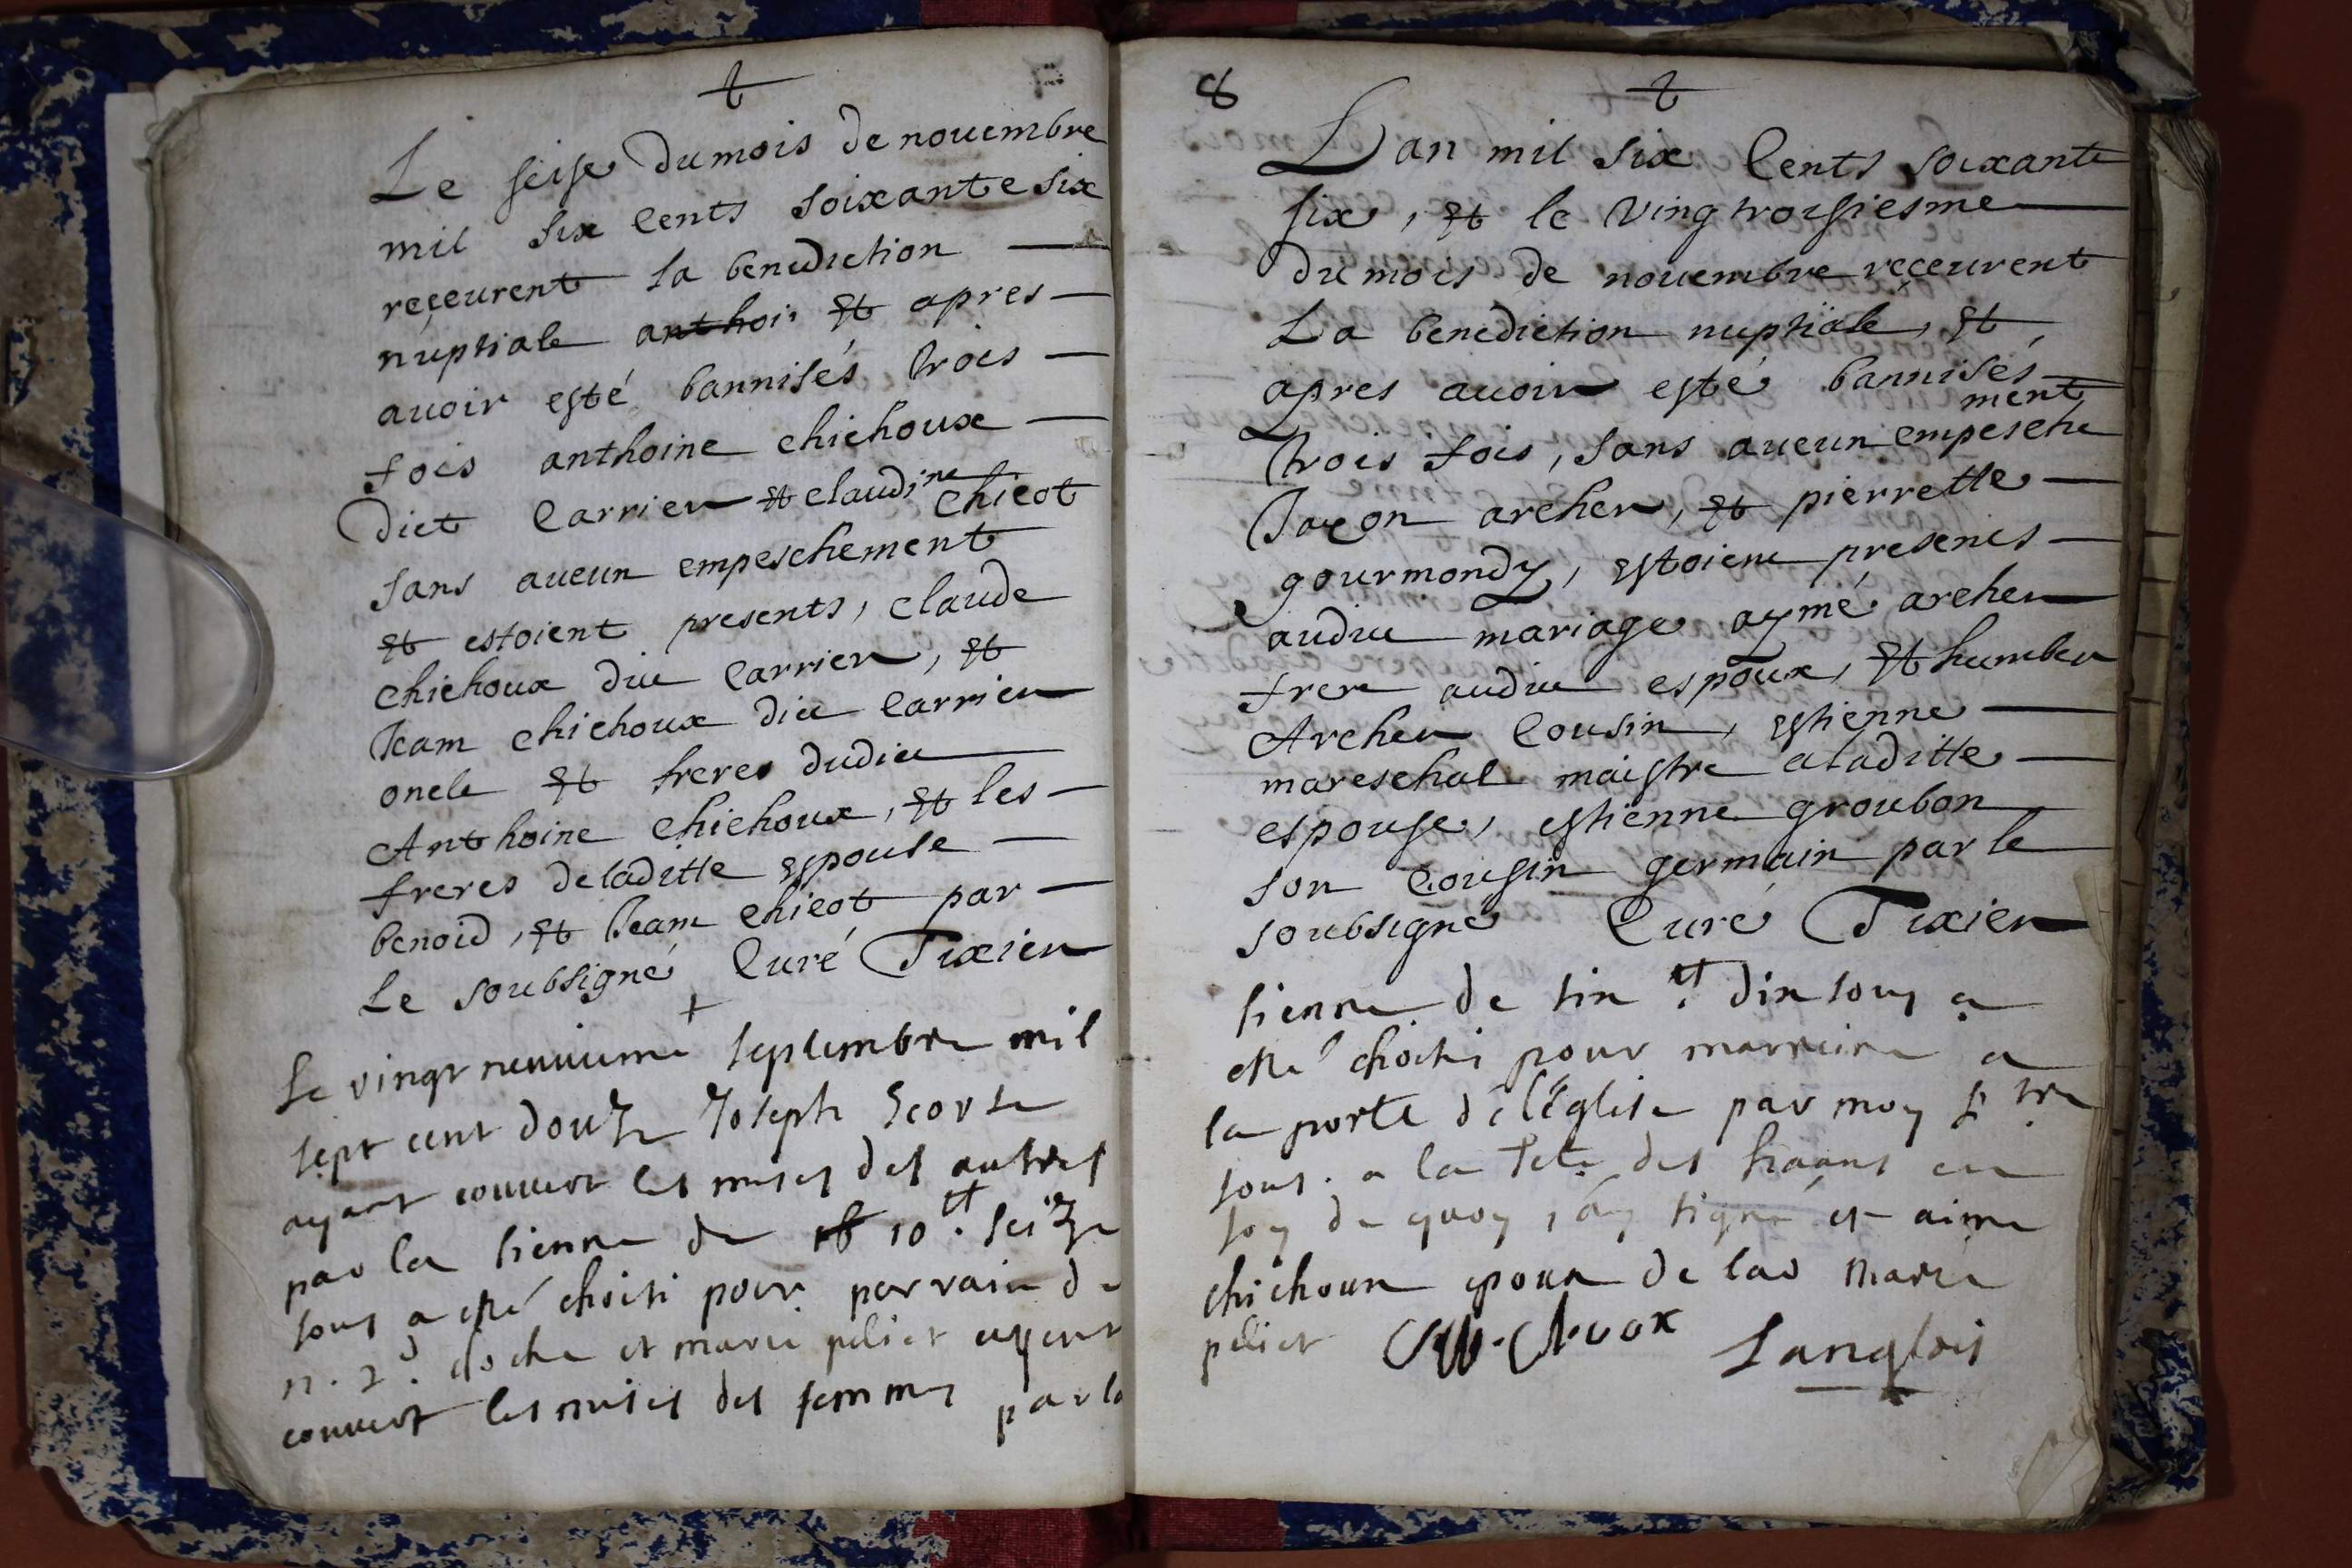 Le seise du mois de nouembre
mil six cents soixante six
reçeurent la benediction
nuptiale anthoi et apres
auoir esté bannisés trois
fois anthoine chichoux
dict carrier et claudine
chicot
sans aucun empeschement
et estoient presents, claude
chichoux dict carrier, et
Jeam chichoux dict carrier
oncle et freres dudict
Anthoine chichoux, et les
freres de laditte espouse
benoid, et Jeam chicot par
Le soubsigné Curé Tixier
Le vingt neuvieme septembre mil
sept cent douze Joseph
ayant couvert les mises des autres
par la sienne de 10 tt. seize
sous a esté choisi pour parrain de
n. 2. cloche et marie peliet ayent
couvert les mises des femmes par la
8
L'an mil six Cents soixante
six, et le vingtroisiesme
du mois de nouembre reçeurent
La benediction nuptiale, et
apres auoir esté bannisés
ment
trois fois, sans aucun empesche
archer, et pierrette
gourmondy, estoient presents
audict mariage aymé archer
frere audict espoux, et humber
Archer Cousin, estienne
mareschal maistre a laditte
espouse, estienne groubon
son Cousin germain par le
soubsigné Curé Tixier
sienne de sin tt. din sous a
esté choisi pour marraine a
la porte de l'Église par moy ptre
sous. a la tete des en
foy de quoy j'ay signé et aimé
chichoux epoux de lad marie
peliet Langlois